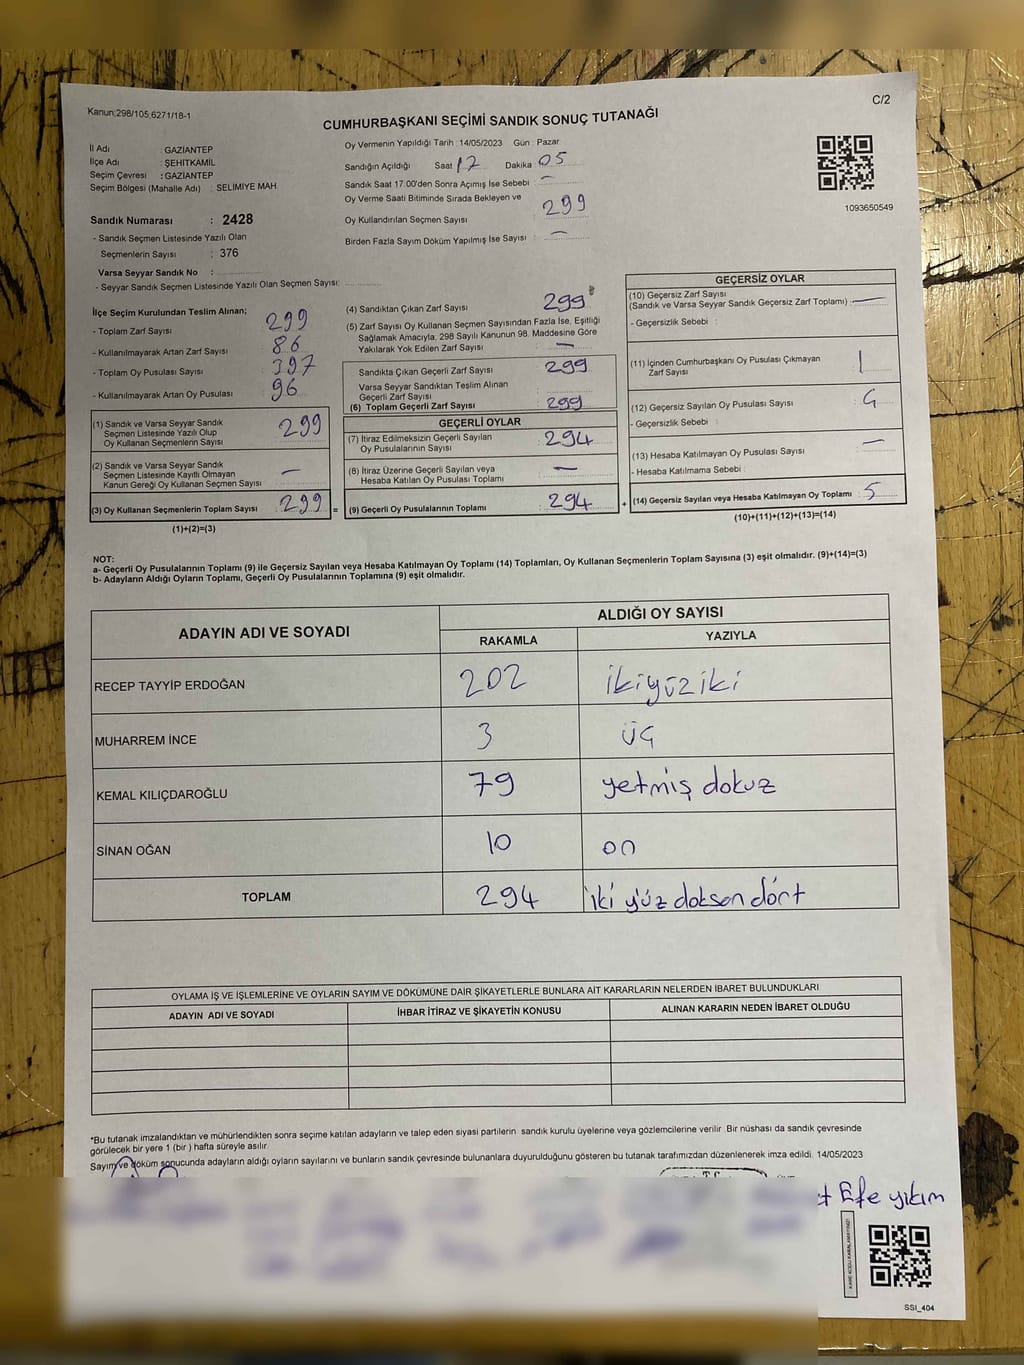 Kanun;298/105,6271/18-1
C/2
CUMHURBAŞKANI SEÇİMİ SANDIK SONUÇ TUTANAĞI
İl Adı : GAZİANTEP
İlçe Adı : ŞEHİTKAMİL
Seçim Çevresi : GAZİANTEP
Seçim Bölgesi (Mahalle Adı) : SELİMİYE MAH
Sandık Numarası : 2428
- Sandık Seçmen Listesinde Yazılı Olan
Seçmenlerin Sayısı : 376
Varsa Seyyar Sandık No :
- Seyyar Sandık Seçmen Listesinde Yazılı Olan Seçmen Sayısı:
Oy Vermenin Yapıldığı Tarih : 14/05/2023 Gün : Pazar
Sandığın Açıldığı Saat 17 Dakika 05
Sandık Saat 17:00'den Sonra Açımış İse Sebebi : —
Oy Verme Saati Bitiminde Sırada Bekleyen ve
Oy Kullandırılan Seçmen Sayısı 299
Birden Fazla Sayım Döküm Yapılmış İse Sayısı : —
1093650549
İlçe Seçim Kurulundan Teslim Alınan;
- Toplam Zarf Sayısı 299
- Kullanılmayarak Artan Zarf Sayısı 86
- Toplam Oy Pusulası Sayısı 397
- Kullanılmayarak Artan Oy Pusulası 96
(1) Sandık ve Varsa Seyyar Sandık
Seçmen Listesinde Yazılı Olup
Oy Kullanan Seçmenlerin Sayısı 299
(2) Sandık ve Varsa Seyyar Sandık
Seçmen Listesinde Kayıtlı Olmayan
Kanun Gereği Oy Kullanan Seçmen Sayısı —
(3) Oy Kullanan Seçmenlerin Toplam Sayısı 299
(1)+(2)=(3)
=
(4) Sandıktan Çıkan Zarf Sayısı 299
(5) Zarf Sayısı Oy Kullanan Seçmen Sayısından Fazla İse, Eşitliği
Sağlamak Amacıyla, 298 Sayılı Kanunun 98. Maddesine Göre
Yakılarak Yok Edilen Zarf Sayısı —
Sandıkta Çıkan Geçerli Zarf Sayısı 299
Varsa Seyyar Sandıktan Teslim Alınan
Geçerli Zarf Sayısı
(6) Toplam Geçerli Zarf Sayısı 299
GEÇERLİ OYLAR
(7) İtiraz Edilmeksizin Geçerli Sayılan
Oy Pusulalarının Sayısı : 294
(8) İtiraz Üzerine Geçerli Sayılan veya
Hesaba Katılan Oy Pusulası Toplamı : —
(9) Geçerli Oy Pusulalarının Toplamı : 294
+
GEÇERSİZ OYLAR
(10) Geçersiz Zarf Sayısı
(Sandık ve Varsa Seyyar Sandık Geçersiz Zarf Toplamı) : —
- Geçersizlik Sebebi :
(11) İçinden Cumhurbaşkanı Oy Pusulası Çıkmayan
Zarf Sayısı : 1
(12) Geçersiz Sayılan Oy Pusulası Sayısı :
- Geçersizlik Sebebi :
(13) Hesaba Katılmayan Oy Pusulası Sayısı : —
- Hesaba Katılmama Sebebi :
(14) Geçersiz Sayılan veya Hesaba Katılmayan Oy Toplamı : 5
(10)+(11)+(12)+(13)=(14)
NOT:
a- Geçerli Oy Pusulalarının Toplamı (9) ile Geçersiz Sayılan veya Hesaba Katılmayan Oy Toplamı (14) Toplamları, Oy Kullanan Seçmenlerin Toplam Sayısına (3) eşit olmalıdır. (9)+(14)=(3)
b- Adayların Aldığı Oyların Toplamı, Geçerli Oy Pusulalarının Toplamına (9) eşit olmalıdır.
ADAYIN ADI VE SOYADI
ALDIĞI OY SAYISI
RAKAMLA YAZIYLA
RECEP TAYYİP ERDOĞAN 202 ikiyüziki
MUHARREM İNCE 3 üç
KEMAL KILIÇDAROĞLU 79 yetmiş dokuz
SİNAN OĞAN 10 on
TOPLAM 294 iki yüz doksan dört
OYLAMA İŞ VE İŞLEMLERİNE VE OYLARIN SAYIM VE DÖKÜMÜNE DAİR ŞİKAYETLERLE BUNLARA AİT KARARLARIN NELERDEN İBARET BULUNDUKLARI
ADAYIN ADI VE SOYADI İHBAR İTİRAZ VE ŞİKAYETİN KONUSU ALINAN KARARIN NEDEN İBARET OLDUĞU
*Bu tutanak imzalandıktan ve mühürlendikten sonra seçime katılan adayların ve talep eden siyasi partilerin sandık kurulu üyelerine veya gözlemcilerine verilir .Bir nüshası da sandık çevresinde
görülecek bir yere 1 (bir ) hafta süreyle asılır.
Sayım ve döküm sonucunda adayların aldığı oyların sayılarını ve bunların sandık çevresinde bulunanlara duyurulduğunu gösteren bu tutanak tarafımızdan düzenlenerek imza edildi. 14/05/2023
T.C.
Efe yıkım
SSI_404